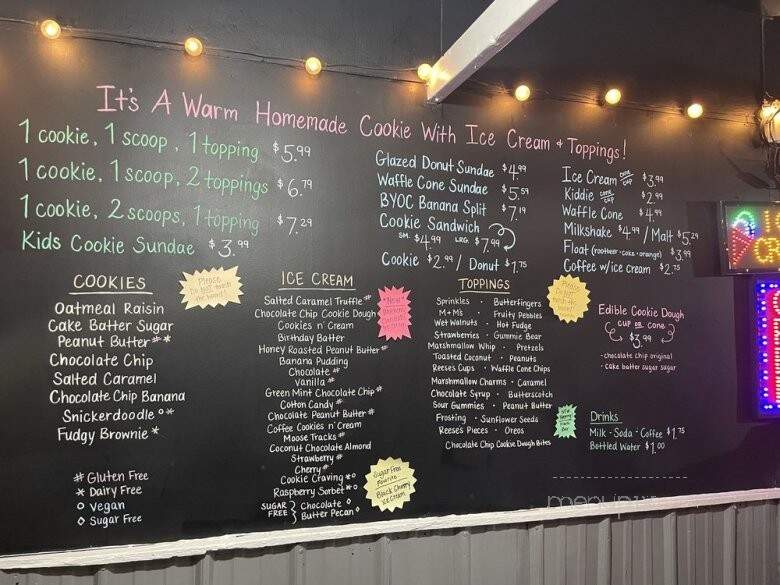 It's A Warm Homemade Cookie With Ice Cream + Toppings!
1 cookie, 1 scoop, 1 topping $5.99
1 cookie, 1 scoop, 2 toppings $6.79
1 cookie, 2 scoops, 1 topping $7.29
Kids Cookie Sundae $3.99
Glazed Donut Sundae $4.99
Waffle Cone Sundae $5.59
BYOC Banana Split $7.19
Cookie Sandwich
SM. $4.99 LRG. $7.99
Cookie $2.99 / Donut $1.75
Ice Cream cone cup $3.99
Kiddie cone cup $2.99
Waffle Cone $4.99
Milkshake $4.99 / Malt $5.29
Float (rootbeer · coke · orange) $3.99
Coffee w/ice cream $2.75
COOKIES
Oatmeal Raisin
Cake Batter Sugar
Peanut Butter#*
Chocolate Chip
Salted Caramel
Chocolate Chip Banana
Snickerdoodle o*
Fudgy Brownie *
# Gluten Free
* Dairy Free
o Vegan
◊ Sugar Free
Please
Do not touch
the board!
ICE CREAM
Salted Caramel Truffle #
Chocolate Chip Cookie Dough
Cookies n' Cream
Birthday Batter
Honey Roasted Peanut Butter #
Banana Pudding
Chocolate #
Vanilla #
Green Mint Chocolate Chip #
Cotton Candy #
Chocolate Peanut Butter #
Coffee Cookies n' Cream
Moose Tracks #
Coconut Chocolate Almond
Strawberry #
Cherry #
Cookie Craving *o
Raspberry Sorbet #*o
SUGAR FREE } Chocolate ◊
Butter Pecan ◊
*New*
Sugar Free
Favorite
Black Cherry
Ice Cream
TOPPINGS
Sprinkles · Butterfingers
M+M's · Fruity Pebbles
Wet Walnuts · Hot Fudge
Strawberries · Gummie Bear
Marshmallow Whip · Pretzels
Toasted Coconut · Peanuts
Reeses Cups · Waffle Cone Chips
Marshmallow Charms · Caramel
Chocolate Syrup · Butterscotch
Sour Gummies · Peanut Butter
Frosting · Sunflower Seeds
Reese's Pieces · Oreos
Chocolate Chip Cookie Dough Bites
Please
Do not touch
the board!
Edible Cookie Dough
CUP OR CONE
$3.99
- chocolate chip original
- cake batter sugar sugar
Drinks
Milk · Soda · Coffee $1.75
Bottled Water $1.00